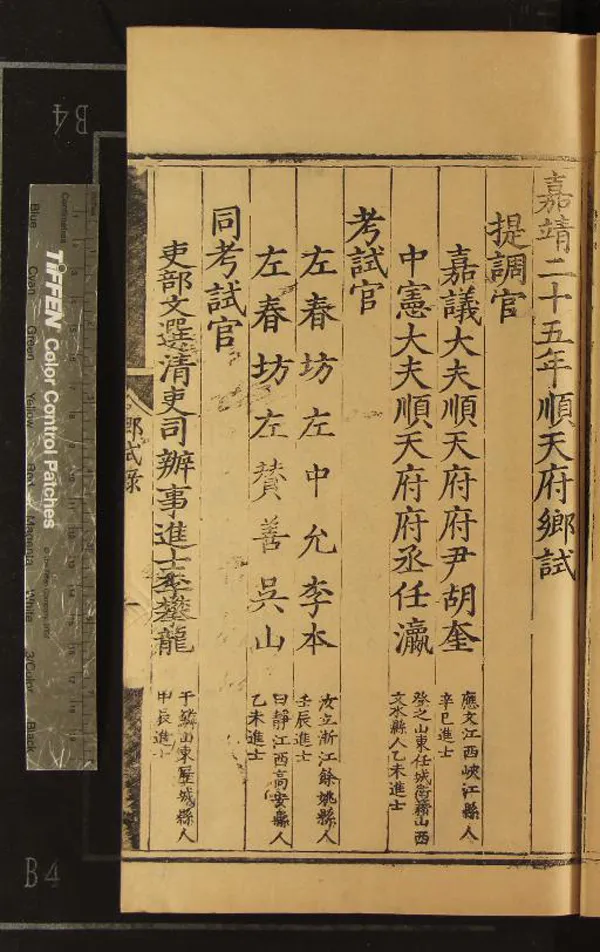 嘉靖二十五年順天府鄉試
提調官
嘉議大夫順天府府尹胡奎
應文江西峽江縣人
辛巳進士
中憲大夫順天府府丞任瀛
登之山東任城衛籍山西
文水縣人乙未進士
考試官
左春坊左中允李本
汝立浙江餘姚縣人
壬辰進士
左春坊左贊善吳山
曰靜江西高安縣人
乙未進士
同考試官
吏部文選清吏司辦事進士李攀龍
于鱗山東歷城縣人
甲辰進士
鄉試錄
一
TIFFEN Color Control Patches
Centimetres
Blue
Cyan
Green
Yellow
Red
Magenta
White
3/Color
Black
B4
B4